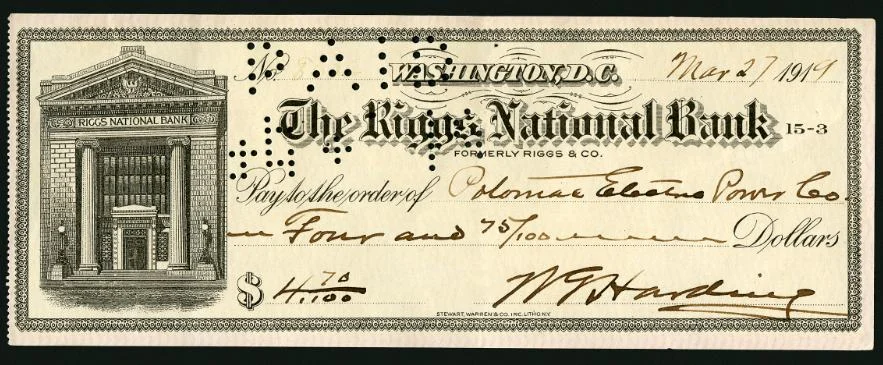 No 8 WASHINGTON, D.C. Mar 27 1919
RIGGS NATIONAL BANK
The Riggs National Bank 15-3
FORMERLY RIGGS & CO.
Pay to the order of Potomac Electric Power Co.
Four and 75/100 Dollars
$ 4.70/100 W G Harding
STEWART, WARREN & CO. INC. LITHO. N.Y.